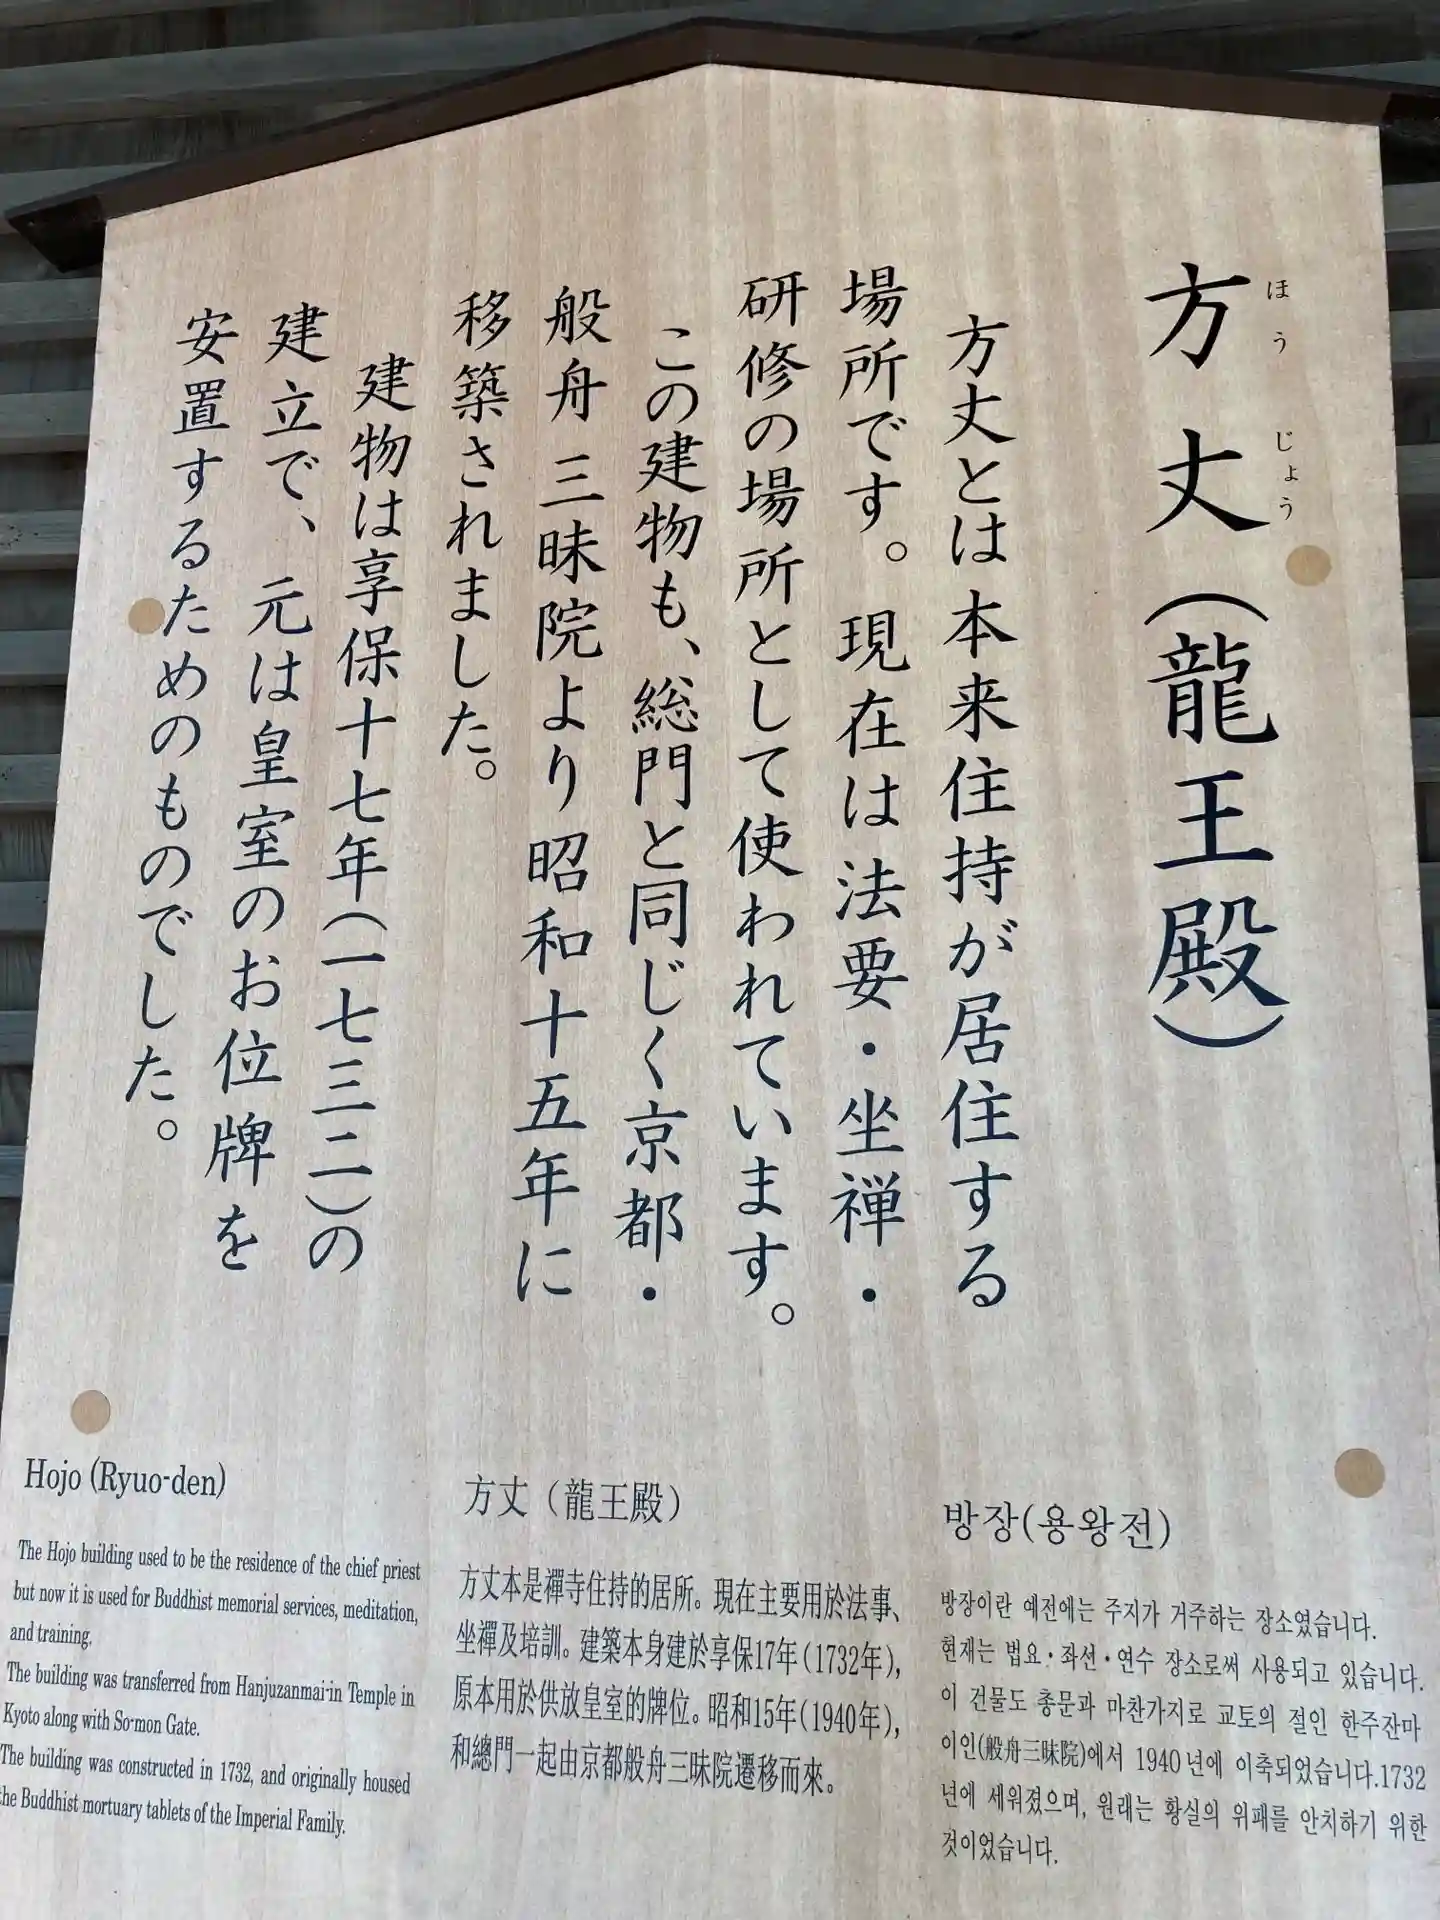 方丈(龍王殿)
ほうじょう
方丈とは本来住持が居住する
場所です。現在は法要・坐禅・
研修の場所として使われています。
この建物も、総門と同じく京都・
般舟三昧院より昭和十五年に
移築されました。
建物は享保十七年(一七三二)の
建立で、元は皇室のお位牌を
安置するためのものでした。
Hojo (Ryuo-den)
The Hojo building used to be the residence of the chief priest
but now it is used for Buddhist memorial services, meditation,
and training.
The building was transferred from Hanjuzanmai-in Temple in
Kyoto along with So-mon Gate.
The building was constructed in 1732, and originally housed
the Buddhist mortuary tablets of the Imperial Family.
方丈（龍王殿）
方丈本是禪寺住持的居所。現在主要用於法事、
坐禪及培訓。建築本身建於享保17年(1732年),
原本用於供放皇室的牌位。昭和15年(1940年),
和總門一起由京都般舟三昧院遷移而來。
방장(용왕전)
방장이란 예전에는 주지가 거주하는 장소였습니다.
현재는 법요・좌선・연수 장소로써 사용되고 있습니다.
이 건물도 총문과 마찬가지로 교토의 절인 한주잔마
이인(般舟三昧院)에서 1940년에 이축되었습니다.1732
년에 세워졌으며, 원래는 황실의 위패를 안치하기 위한
것이었습니다.